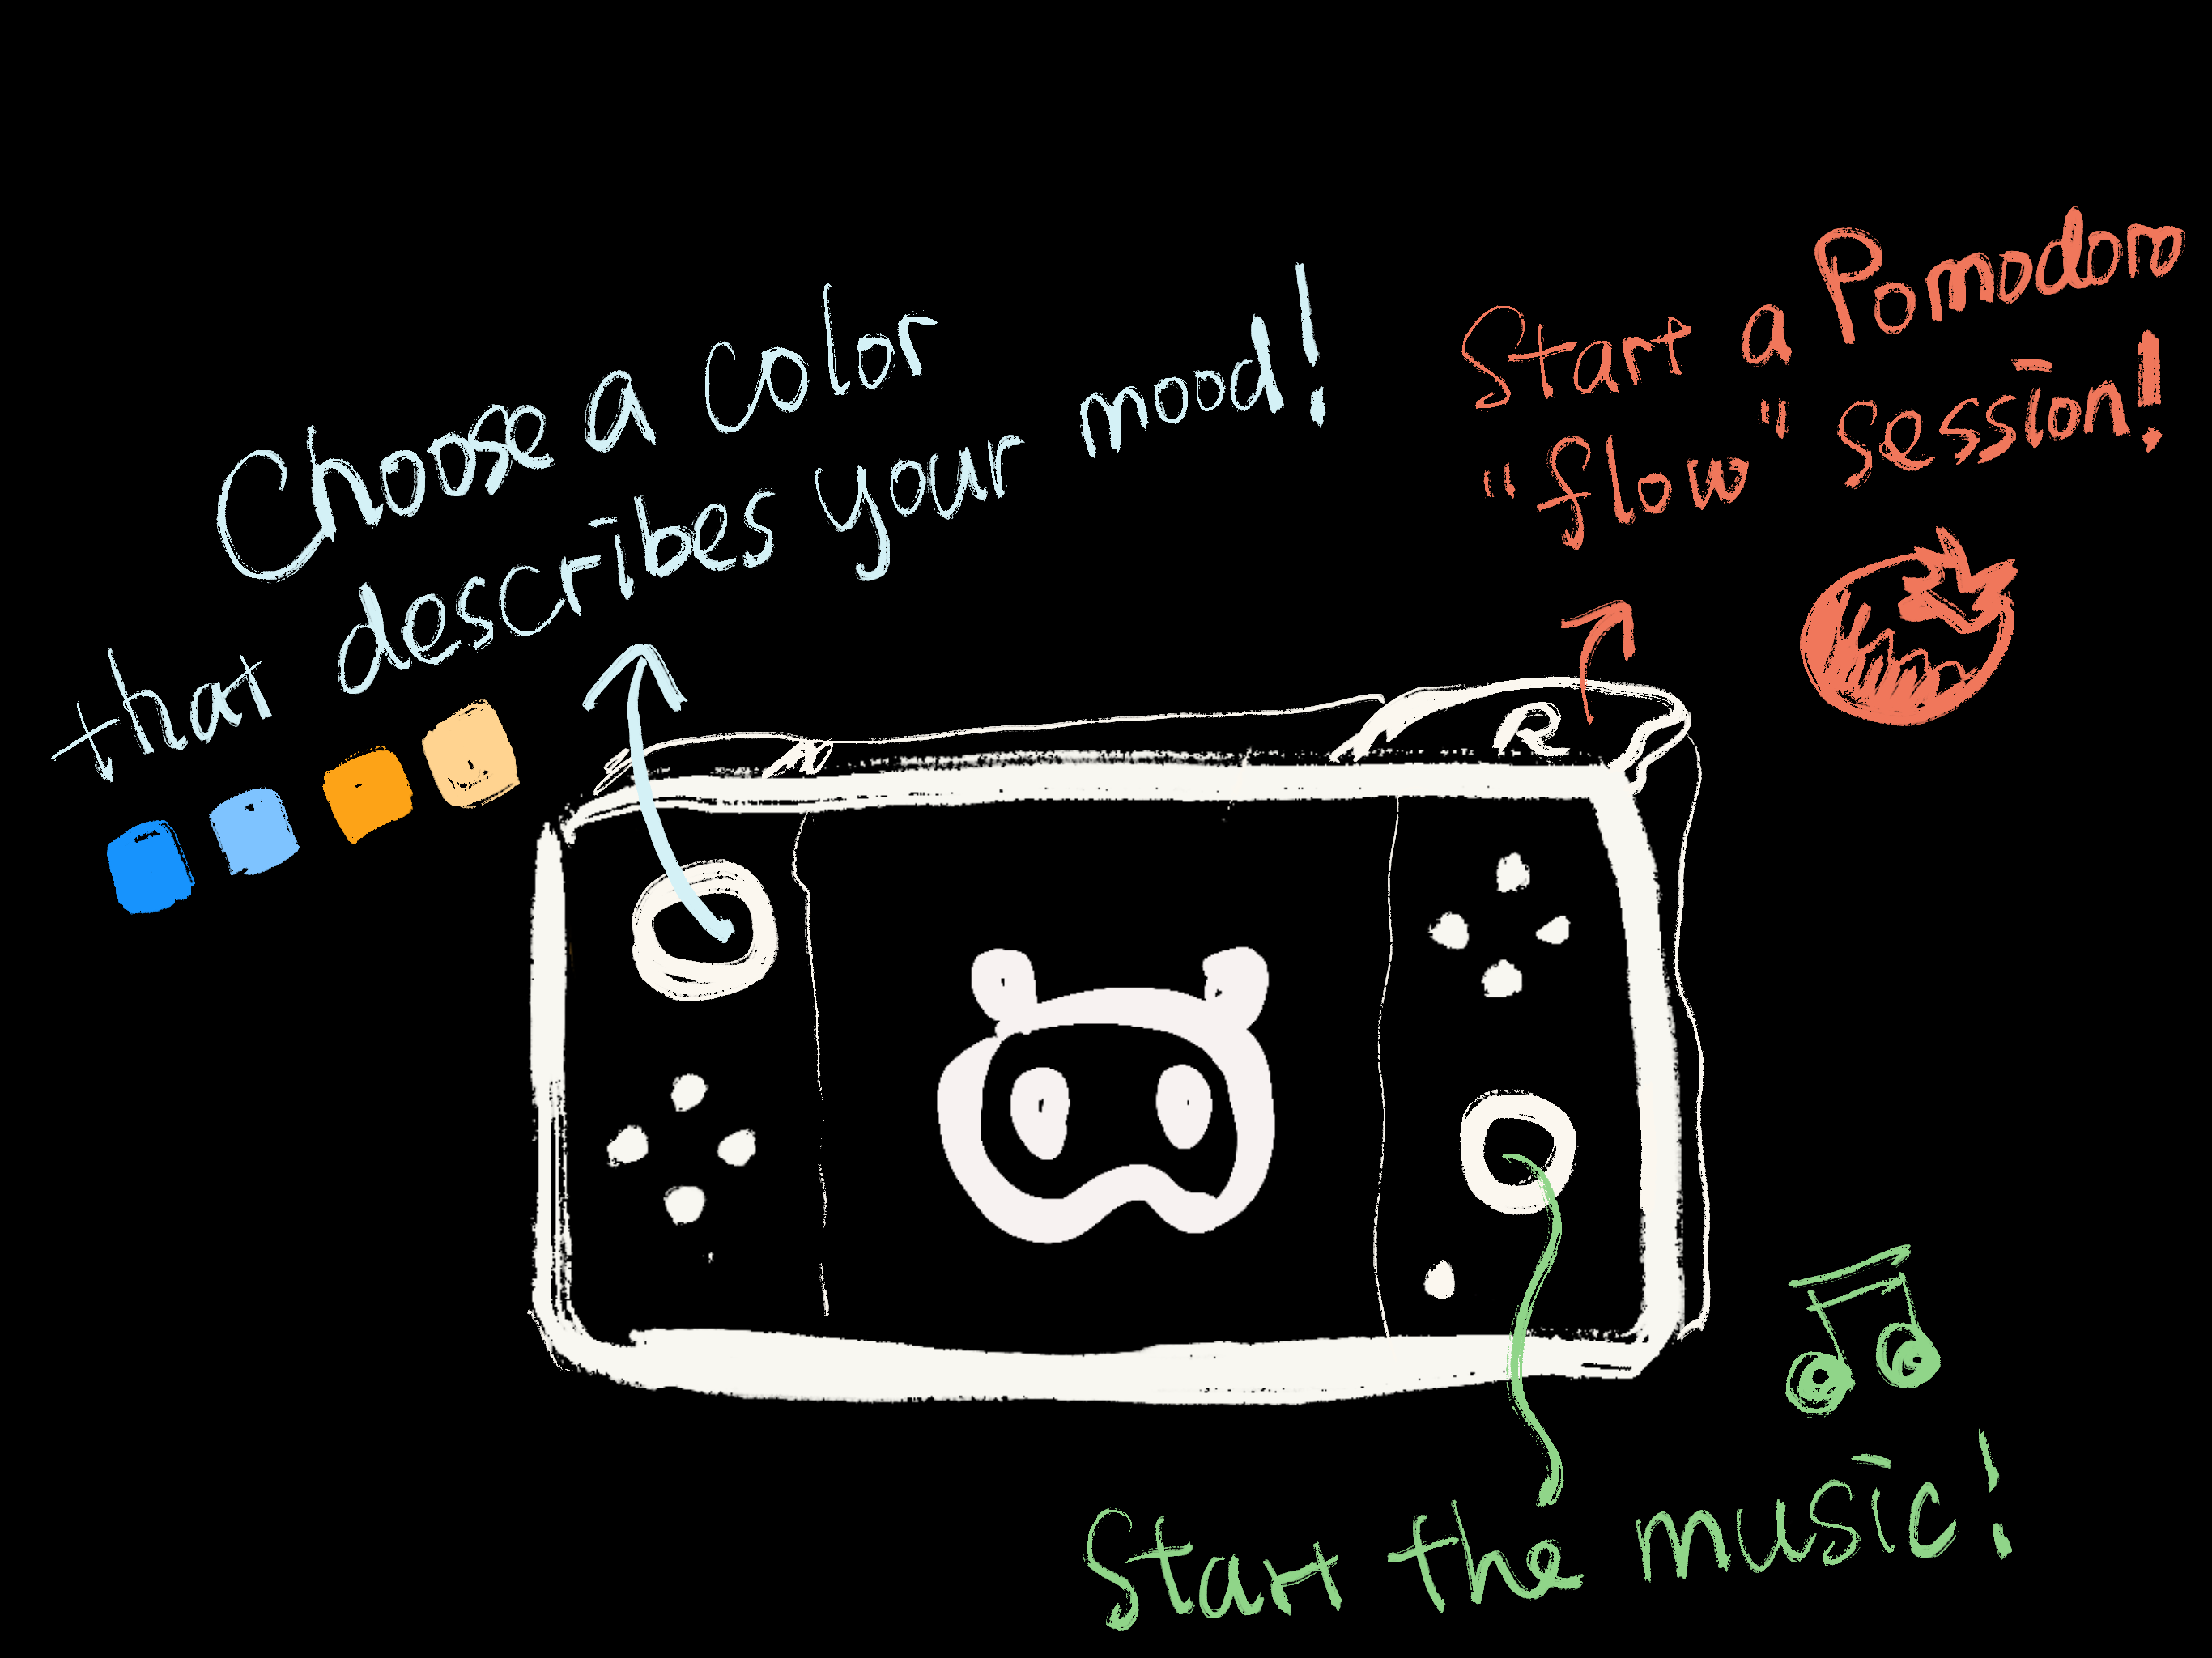 Choose a color
that describes your mood!
Start a Pomodoro
"flow" session!
R
Start the music!